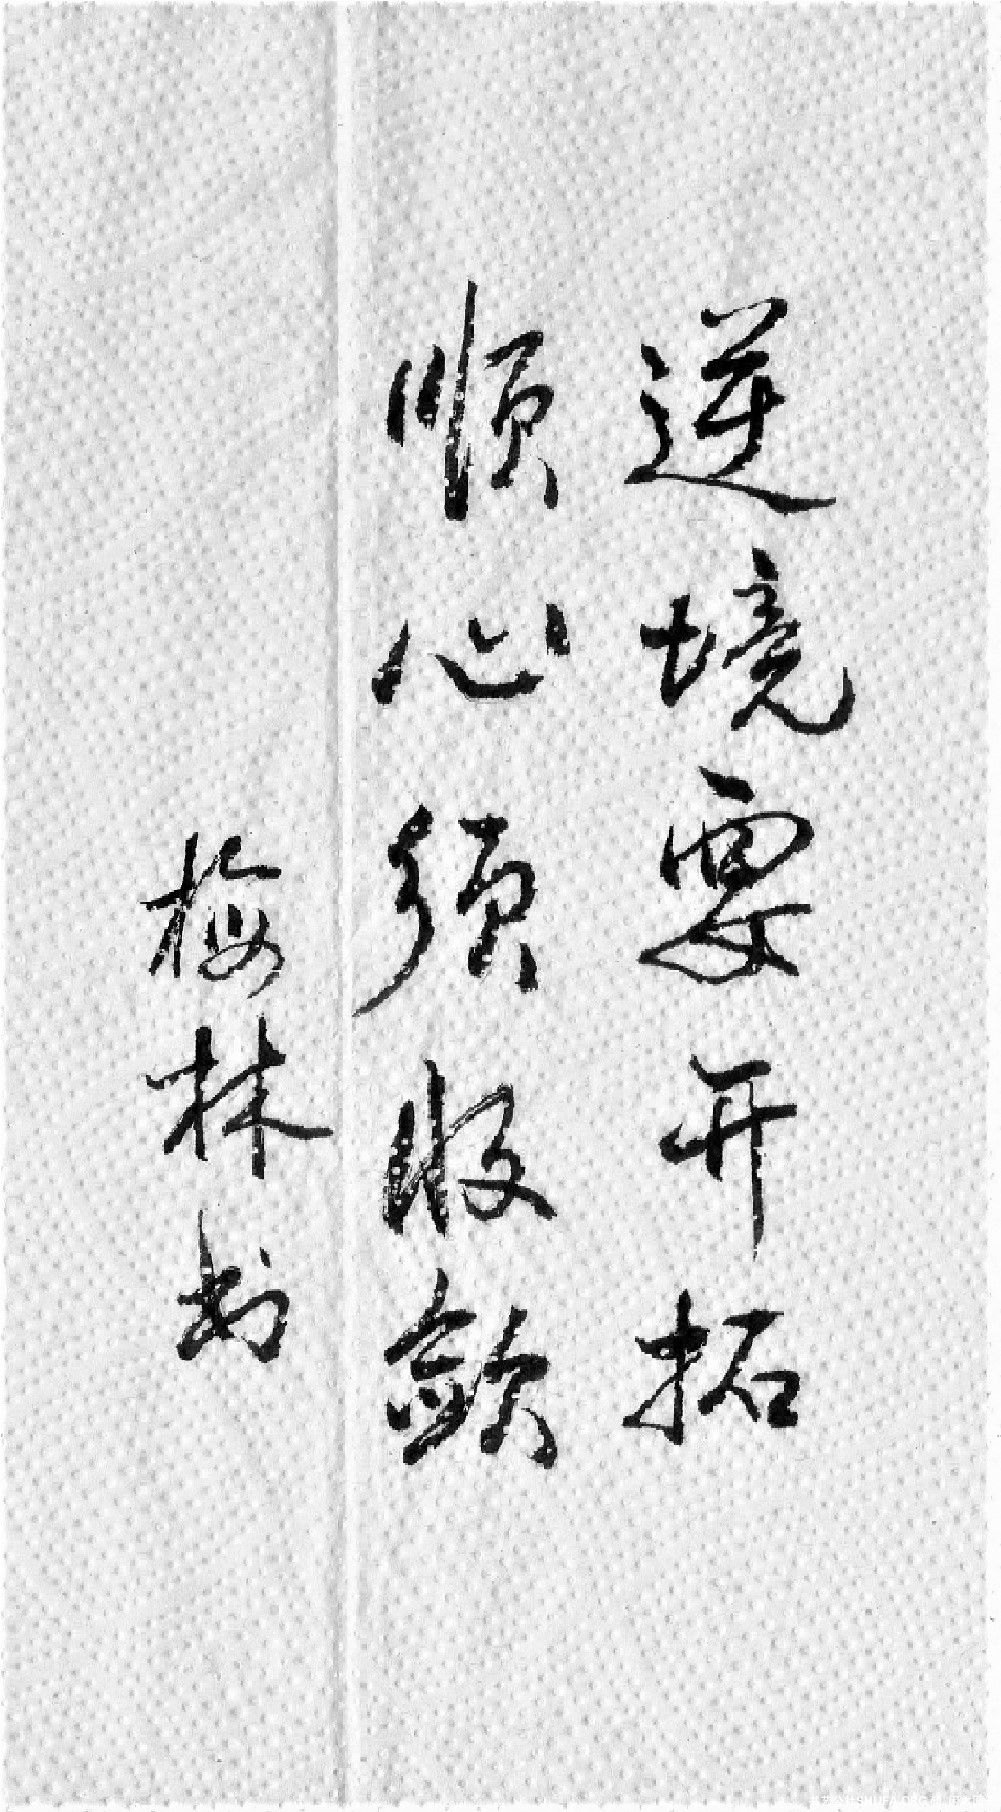 逆境要开拓
顺心须收敛
梅林书